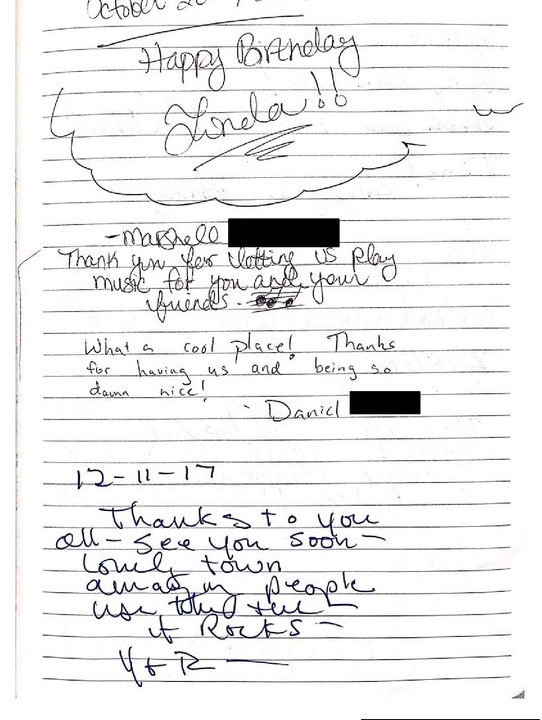 October 20
Happy Birthday
Linda!!
-Marshell
Thank you for letting us play
music for you and your
friends.
What a cool place! Thanks
for having us and being so
damn nice!
- Daniel
12-11-17
Thanks to you
all - See you soon -
Lovely town
amazing people
use
it Rocks -
Y + R